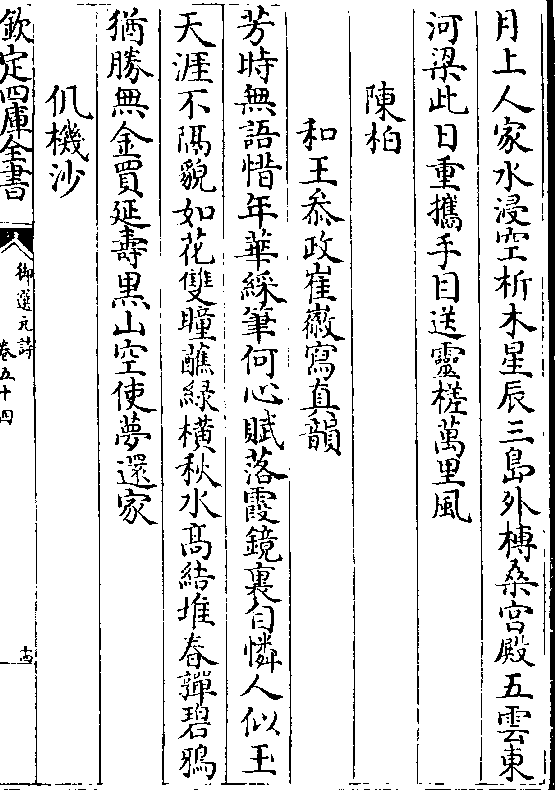 月上人家水浸空析木星辰三島外榑桑宫殿五雲東
河梁此日重攜手目送靈槎萬里風
陳柏
和王叅政崔徽寫真韻
芳時無語惜年華綵筆何心賦落霞鏡裏自憐人似玉
天涯不隔貌如花雙瞳蘸緑横秋水髙結堆春嚲碧鴉
猶勝無金買延壽黒山空使夢還家
仉機沙
欽定四庫全書
御選元詩
卷五十四
十四